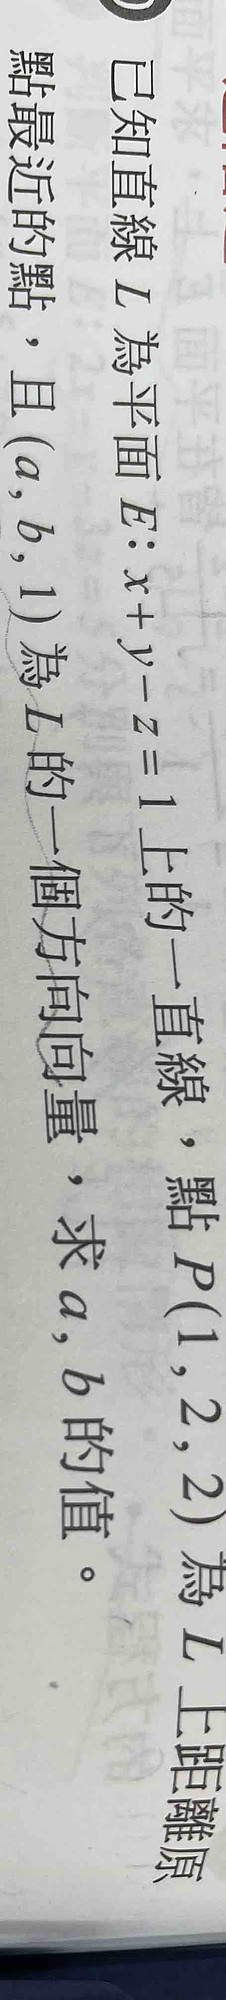 已知直線 L 為平面 E: x+y−z=1 上的一直線，點 P(1,2,2) 為 L 上距離原
點最近的點，且 (a, b, 1) 為 L 的一個方向向量，求 a, b 的值。